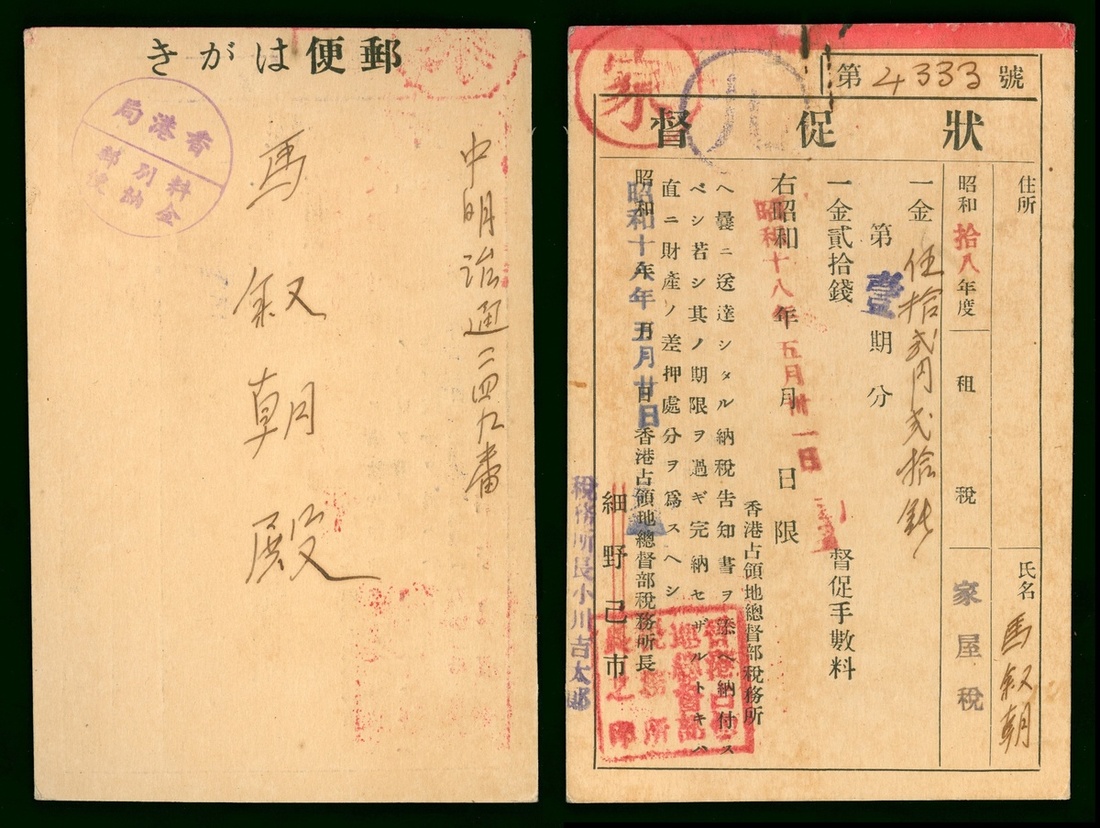 郵便はがき
香港局
料金別納郵便
中明治通二四九番
馬叙朝殿
家
第4333號
督促狀
住所
氏名 馬叙朝
昭和拾八年度 租稅 家屋稅
一金伍拾弐円弐拾銭
第壹期分
一金貳拾錢 督促手數料
右昭和 年 月 日限
昭和十八年五月卅一日
香港占領地總督部稅務所
ヘ曩ニ送達シタル納稅告知書ヲ添ヘ納付ス
ベシ若シ其ノ期限ヲ過ギ完納セザルトキハ
直ニ財產ノ差押處分ヲ爲スヘシ
昭和 年 月 日 香港占領地總督部稅務所長
昭和十八年五月廿日
細野己市
稅務所長小川吉太郎
香港占領地總督部稅務所長之印